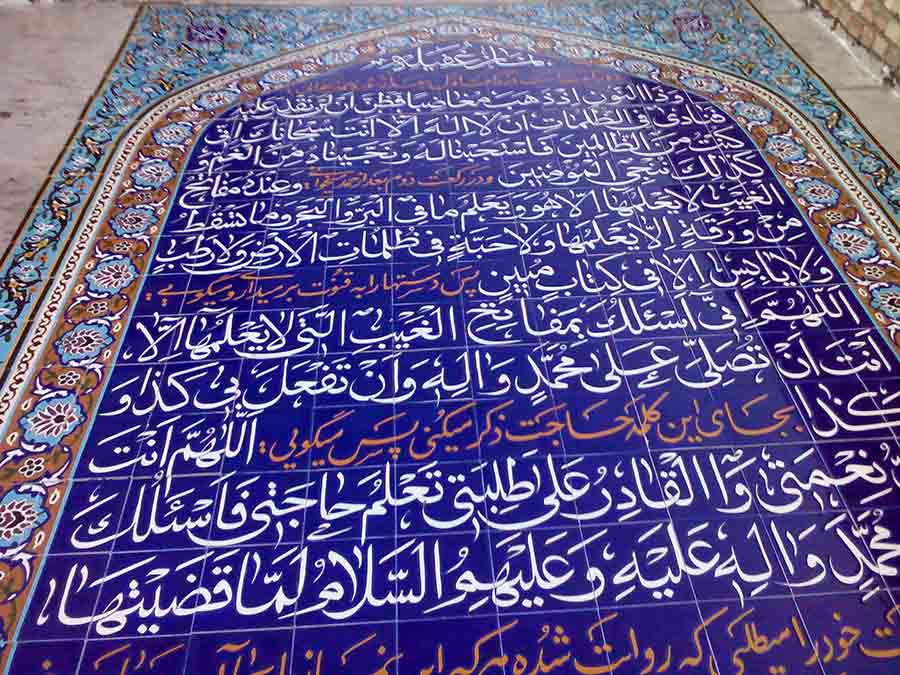 نماز غفیله
وذا النون اذذهب مغاضبا فظن ان لن نقدر علیه
فنادی فی الظلمات ان لا اله الا انت سبحانک انی
کنت من الظالمین فاستجبنا له ونجیناه من الغم و
کذالک ننجی المؤمنین ودر رکعت دوم بعد از حمد میخوانی وعنده مفاتح
الغیب لایعلمها الا هو ویعلم ما فی البر والبحر وما تسقط
من ورقة الا یعلمها ولا حبة فی ظلمات الارض ولا رطب
ولا یابس الا فی کتاب مبین پس دستها را به قنوت برمیداری و میگویی:
اللهم انی اسئلک بمفاتح الغیب التی لا یعلمها الا
انت ان تصلی علی محمد واله وان تفعل بی کذا و
کذا بجای این کلمه حاجت ذکر میکنی پس میگویی: اللهم انت
نعمتی والقادر علی طلبتی تعلم حاجتی فاسئلک
محمد واله علیه وعلیهم السلام لما قضیتها،
خود را میطلبی که روایت شده که این